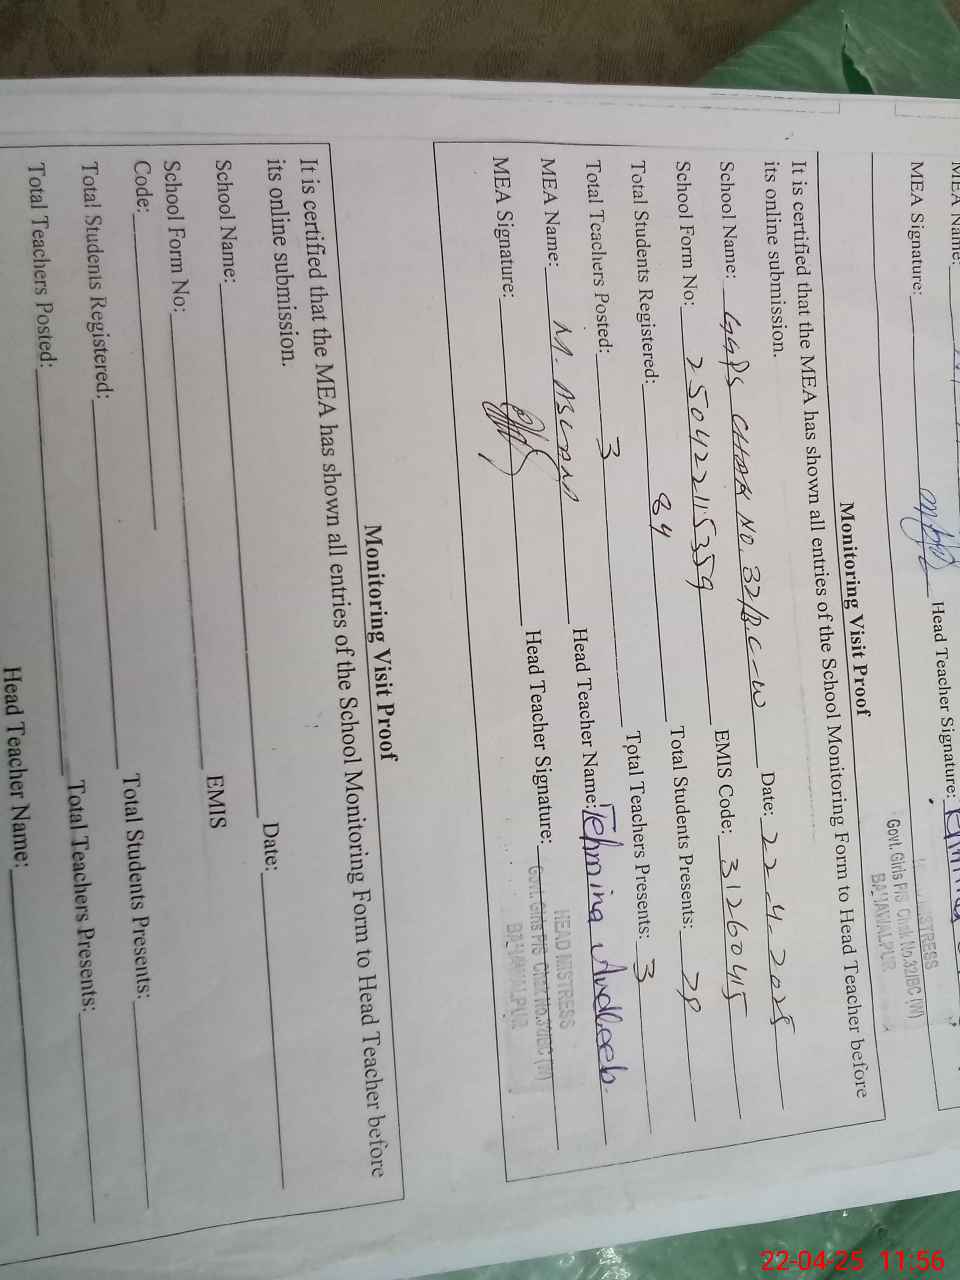 MEA Name:
MEA Signature: Head Teacher Signature:
MISTRESS
Govt. Girls P/S Chak No.32/BC (W)
BAHAWALPUR
Monitoring Visit Proof
It is certified that the MEA has shown all entries of the School Monitoring Form to Head Teacher before
its online submission.
School Name: GGPS CHAK NO. 32/B.C-W Date: 22.4.2025
School Form No: 250422115359 EMIS Code: 31260415
Total Students Registered: 84 Total Students Presents:
Total Teachers Posted: 3 Total Teachers Presents: 3
MEA Name: M. Head Teacher Name: Tehmina Andleeb.
MEA Signature: Head Teacher Signature:
HEAD MISTRESS
Govt. Girls P/S Chak No.32/BC (W)
BAHAWALPUR
Monitoring Visit Proof
It is certified that the MEA has shown all entries of the School Monitoring Form to Head Teacher before
its online submission.
School Name: Date:
School Form No: EMIS
Code:
Total Students Registered: Total Students Presents:
Total Teachers Posted: Total Teachers Presents:
Head Teacher Name:
22-04-25 11:56